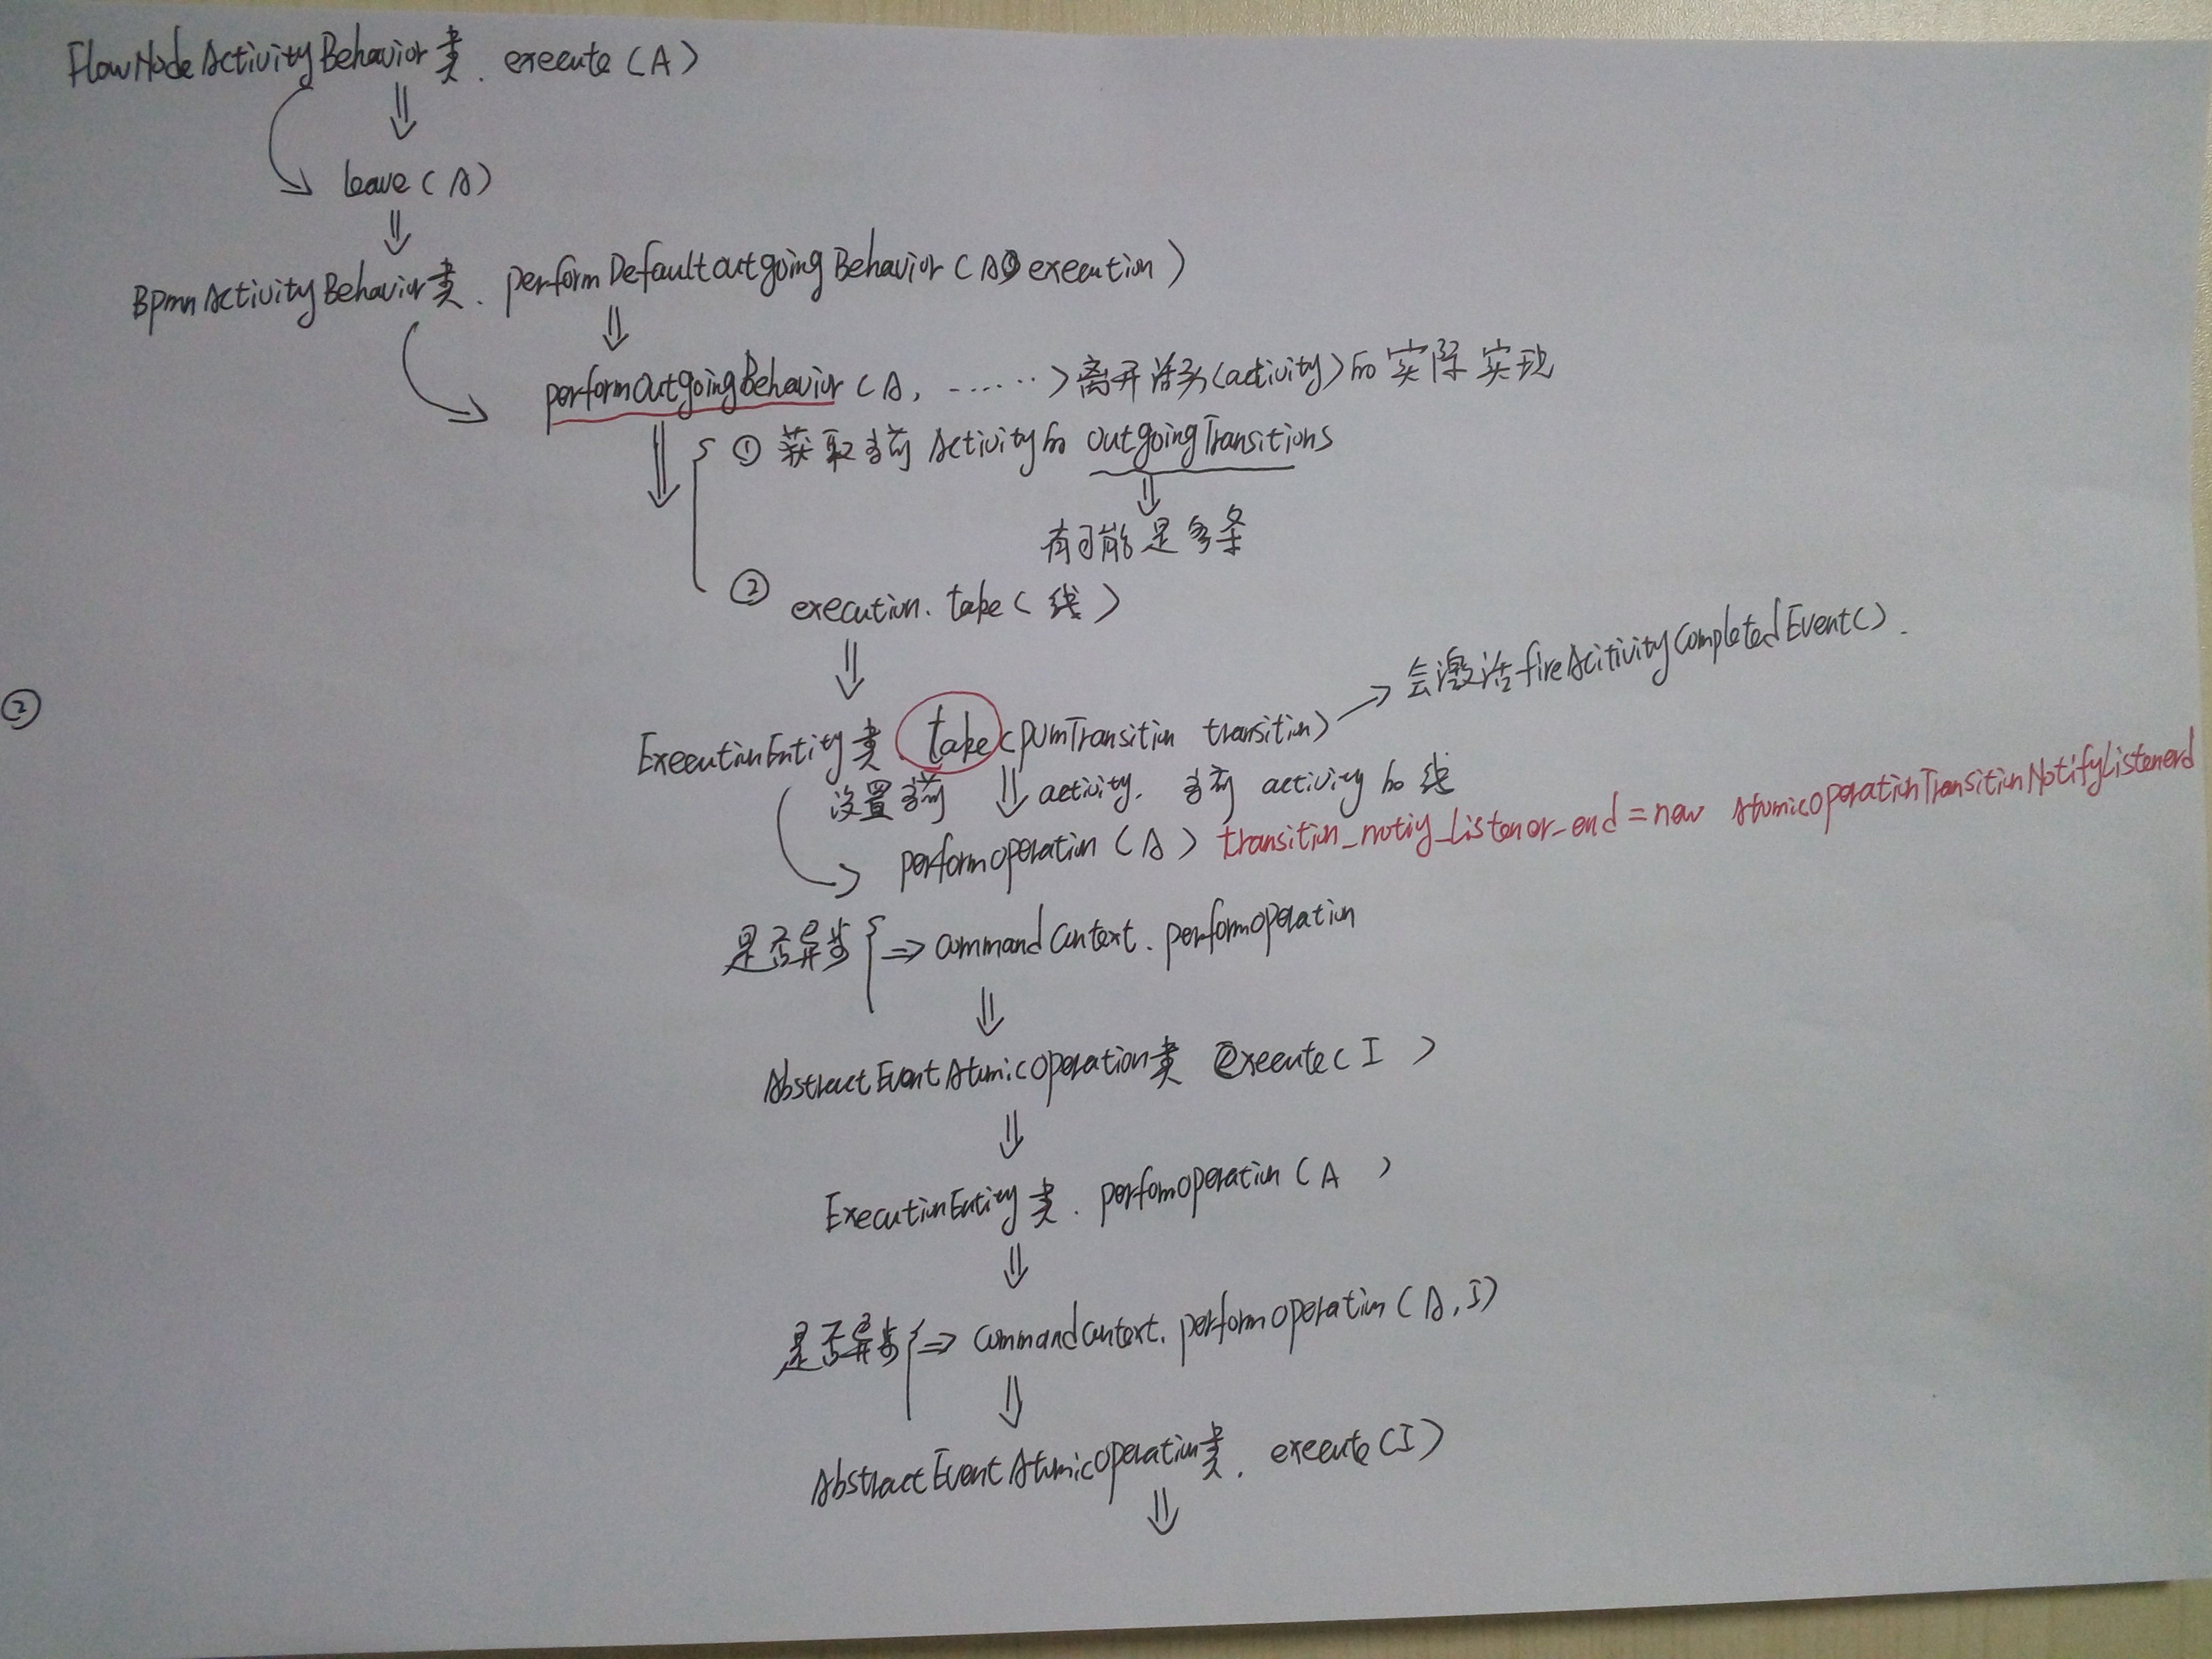 FlowNodeActivityBehavior类. execute(A)
leave(A)
BpmnActivityBehavior类. performDefaultOutgoingBehavior(A execution)
performOutgoingBehavior(A, ......)离开活动(activity)的实际实现
① 获取当前Activity的 outgoingTransitions
有可能是多条
② execution. take(线)
会激活fireAcitivityCompletedEvent().
②
ExecutionEntity类 take(PvmTransition transition)
设置当前 activity. 当前 activity的线
performOperation(A) transition_notiy_listener_end = new AtomicOperationTransitionNotifyListenerd
是否异步 => commandContext. performOperation
AbstractEventAtomicOperation类 execute(I )
ExecutionEntity类. perfomOperation(A )
是否异步 => commandContext. performOperation(A, I)
AbstractEventAtomicOperation类. execute(I)